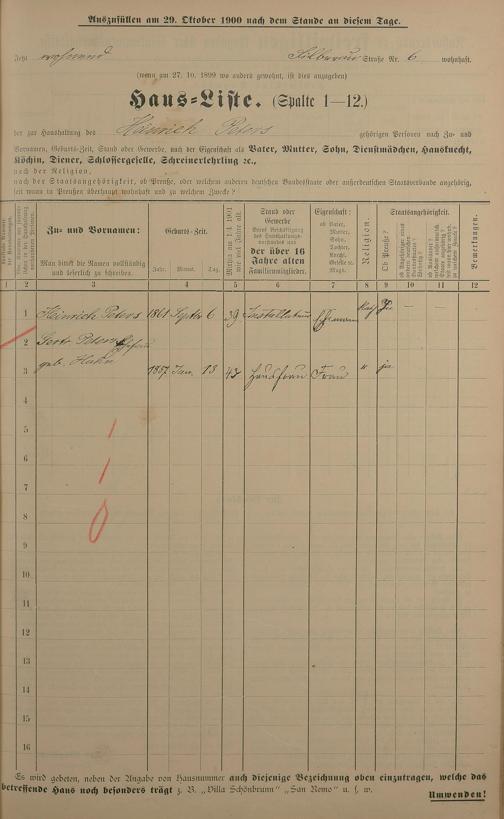 Auszufüllen am 29. Oktober 1900 nach dem Stande an diesem Tage.
Jetzt wohnend Straße Nr. 6 wohnhaft.
(wenn am 27. 10. 1899 wo anders gewohnt, ist dies anzugeben)
Haus-Liste. (Spalte 1—12.)
der zur Haushaltung des Heinrich Peters gehörigen Personen nach Zu- und
Vornamen, Geburts-Zeit, Stand oder Gewerbe, nach der Eigenschaft als Vater, Mutter, Sohn, Dienstmädchen, Hausknecht,
Köchin, Diener, Schlossergeselle, Schreinerlehrling ꝛc.,
nach der Religion,
nach der Staatsangehörigkeit, ob Preuße, oder welchem anderen deutschen Bundesstaate oder außerdeutschen Staatsverbande angehörig,
seit wann in Preußen überhaupt wohnhaft und zu welchem Zwecke?
Zu- und Vornamen:
Man bittet die Namen vollständig
und leserlich zu schreiben.
Geburts-Zeit.
Jahr. Monat. Tag.
Mithin am 1/4 1901
wie viel Jahre alt.
Stand oder
Gewerbe
der über 16
Jahre alten
Familienmitglieder.
Eigenschaft:
ob Vater,
Mutter,
Sohn,
Tochter,
Knecht,
Geselle oder
Magd.
Religion.
Staatsangehörigkeit.
Ob Preuße?
Bemerkungen.
1 2 3 4 5 6 7 8 9 10 11 12
1 Heinrich Peters 1861 Septbr 6 39 Ehemann Kath Ja — — —
2 Peters
geb. Hahn
3 1857 Jan. 13 43 Hausfrau Frau " ja
4
5
6
7
8
9
10
11
12
13
14
15
16
Es wird gebeten, neben der Angabe von Hausnummer auch diejenige Bezeichnung oben einzutragen, welche das
betreffende Haus noch besonders trägt z. B. „Villa Schönbrunn" „San Remo" u. s. w.
Umwenden!